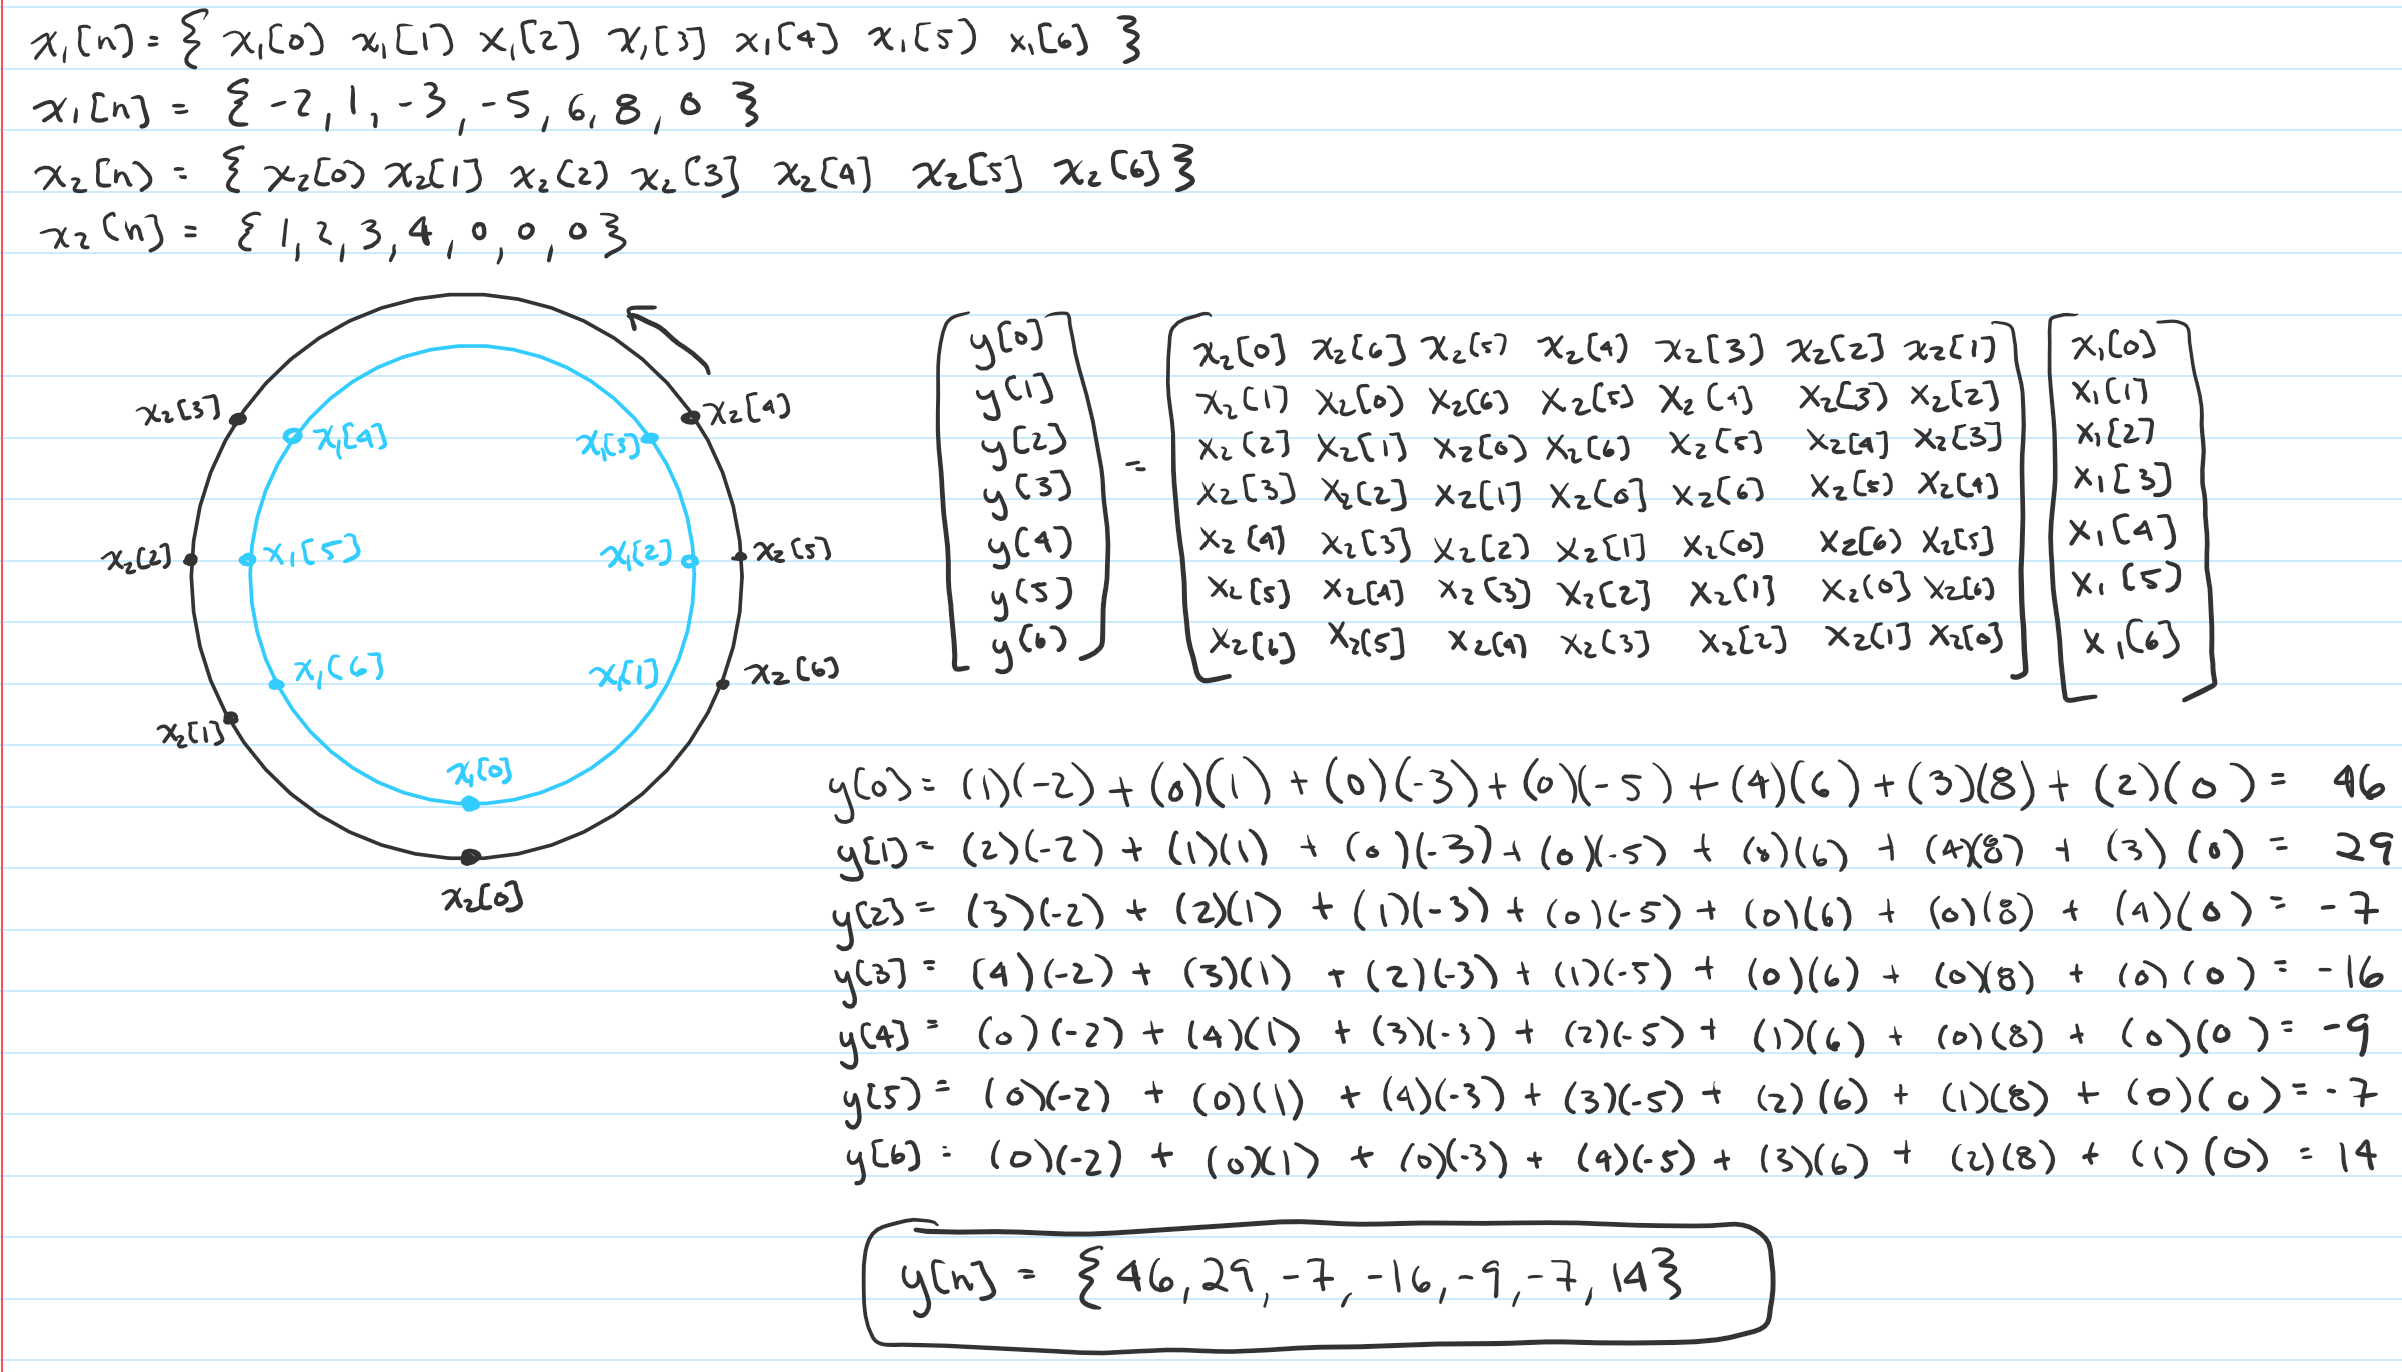 x₁[n] = { x₁[0] x₁[1] x₁[2] x₁[3] x₁[4] x₁[5] x₁[6] }
x₁[n] = { -2, 1, -3, -5, 6, 8, 0 }
x₂[n] = { x₂[0] x₂[1] x₂[2] x₂[3] x₂[4] x₂[5] x₂[6] }
x₂[n] = { 1, 2, 3, 4, 0, 0, 0 }
x₂[3] x₂[4]
x₁[4] x₁[3]
x₂[2] x₁[5] x₁[2] x₂[5]
x₁[6] x₁[1] x₂[6]
x₂[1]
x₁[0]
x₂[0]
y[0] x₂[0] x₂[6] x₂[5] x₂[4] x₂[3] x₂[2] x₂[1] x₁[0]
y[1] x₂[1] x₂[0] x₂[6] x₂[5] x₂[4] x₂[3] x₂[2] x₁[1]
y[2] = x₂[2] x₂[1] x₂[0] x₂[6] x₂[5] x₂[4] x₂[3] x₁[2]
y[3] x₂[3] x₂[2] x₂[1] x₂[0] x₂[6] x₂[5] x₂[4] x₁[3]
y[4] x₂[4] x₂[3] x₂[2] x₂[1] x₂[0] x₂[6] x₂[5] x₁[4]
y[5] x₂[5] x₂[4] x₂[3] x₂[2] x₂[1] x₂[0] x₂[6] x₁[5]
y[6] x₂[6] x₂[5] x₂[4] x₂[3] x₂[2] x₂[1] x₂[0] x₁[6]
y[0] = (1)(-2) + (0)(1) + (0)(-3) + (0)(-5) + (4)(6) + (3)(8) + (2)(0) = 46
y[1] = (2)(-2) + (1)(1) + (0)(-3) + (0)(-5) + (0)(6) + (4)(8) + (3)(0) = 29
y[2] = (3)(-2) + (2)(1) + (1)(-3) + (0)(-5) + (0)(6) + (0)(8) + (4)(0) = -7
y[3] = (4)(-2) + (3)(1) + (2)(-3) + (1)(-5) + (0)(6) + (0)(8) + (0)(0) = -16
y[4] = (0)(-2) + (4)(1) + (3)(-3) + (2)(-5) + (1)(6) + (0)(8) + (0)(0) = -9
y[5] = (0)(-2) + (0)(1) + (4)(-3) + (3)(-5) + (2)(6) + (1)(8) + (0)(0) = -7
y[6] = (0)(-2) + (0)(1) + (0)(-3) + (4)(-5) + (3)(6) + (2)(8) + (1)(0) = 14
y[n] = { 46, 29, -7, -16, -9, -7, 14 }